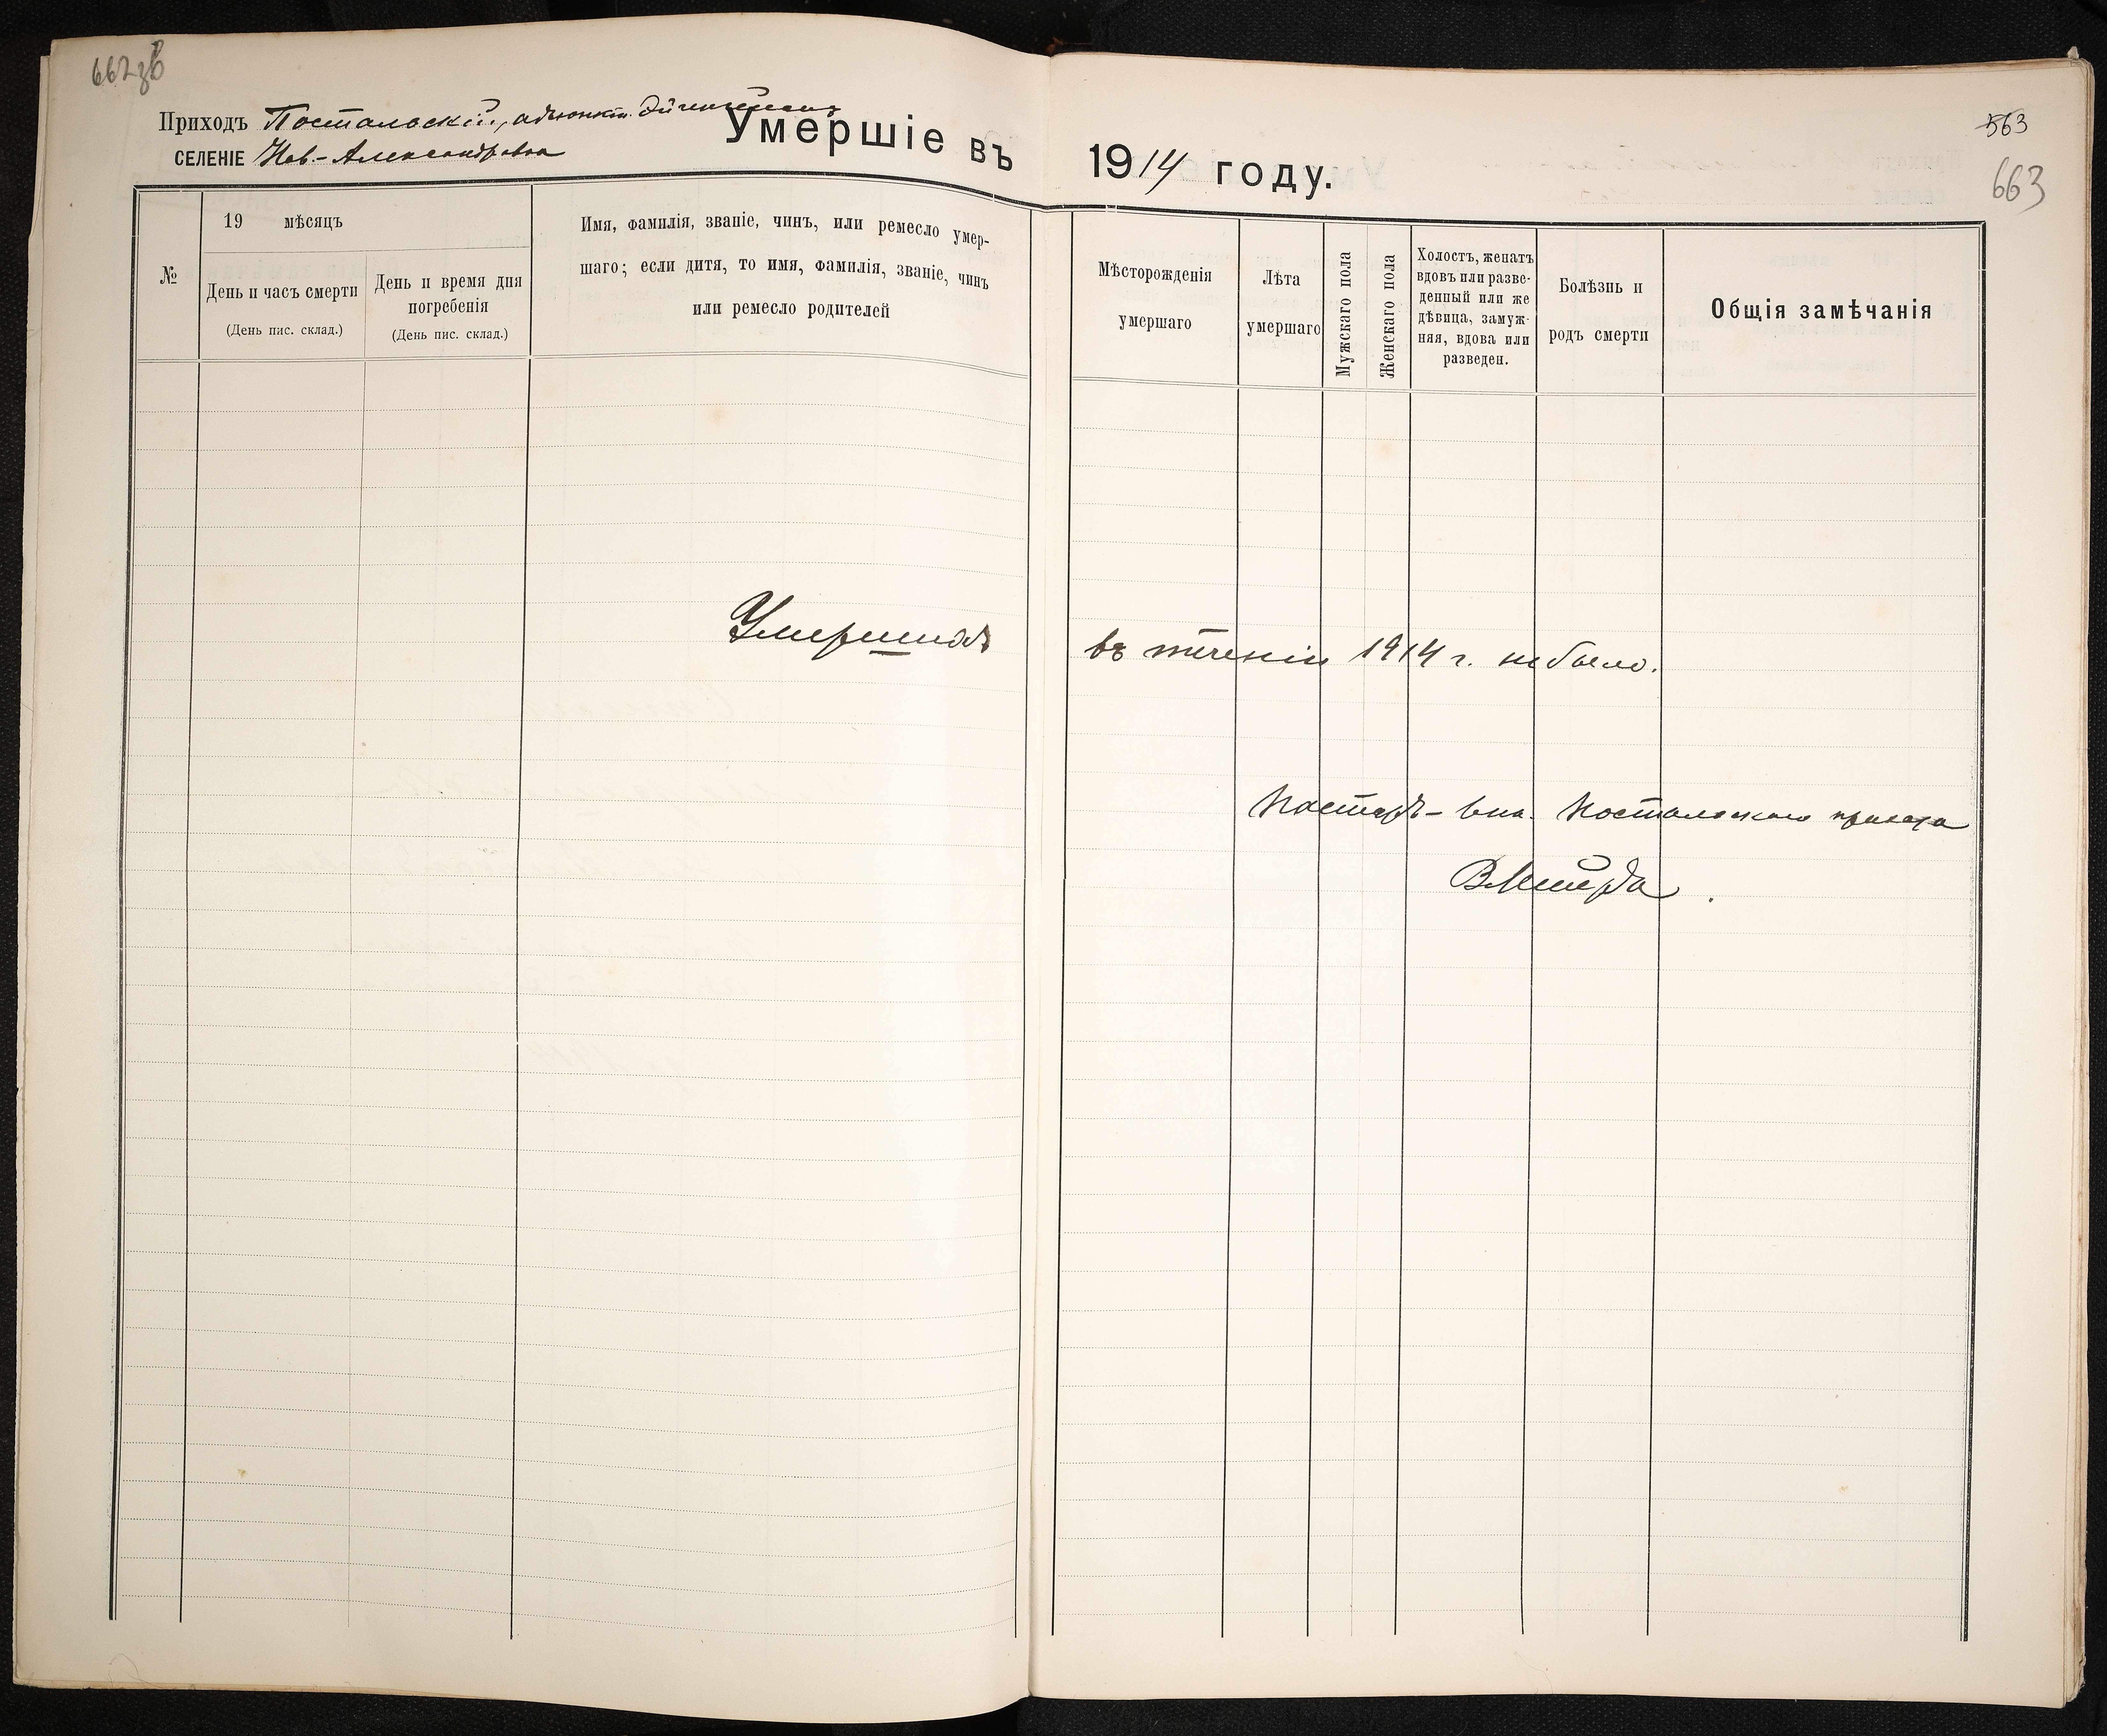 662 об
563
663
Приходъ Постальскій, адъюнкт.
Умершіе въ 1914 году.
СЕЛЕНІЕ Нов.-Александровка
№
19 мѣсяцъ
День и часъ смерти
(День пис. склад.)
День и время дня
погребенія
(День пис. склад.)
Имя, фамилія, званіе, чинъ, или ремесло умер-
шаго; если дитя, то имя, фамилія, званіе, чинъ
или ремесло родителей
Мѣсторожденія
умершаго
Лѣта
умершаго
Мужскаго пола
Женскаго пола
Холостъ, женатъ
вдовъ или разве-
денный или же
дѣвица, замуж-
няя, вдова или
разведен.
Болѣзнь и
родъ смерти
Общія замѣчанія
Умершихъ въ теченіи 1914 г. не было.
Пасторъ- Постальскаго прихода